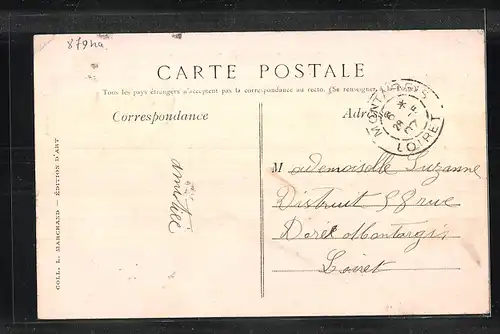 879na
CARTE POSTALE
Tous les pays étrangers n'acceptent pas la correspondance au recto. (Se renseigner à la Poste)
Correspondance
Adre
MONTARGIS
LOIRET
amitiée
Mademoiselle Suzanne
58 rue
Dorée Montargis
Loiret
COLL. L. MARCHAND — ÉDITION D'ART